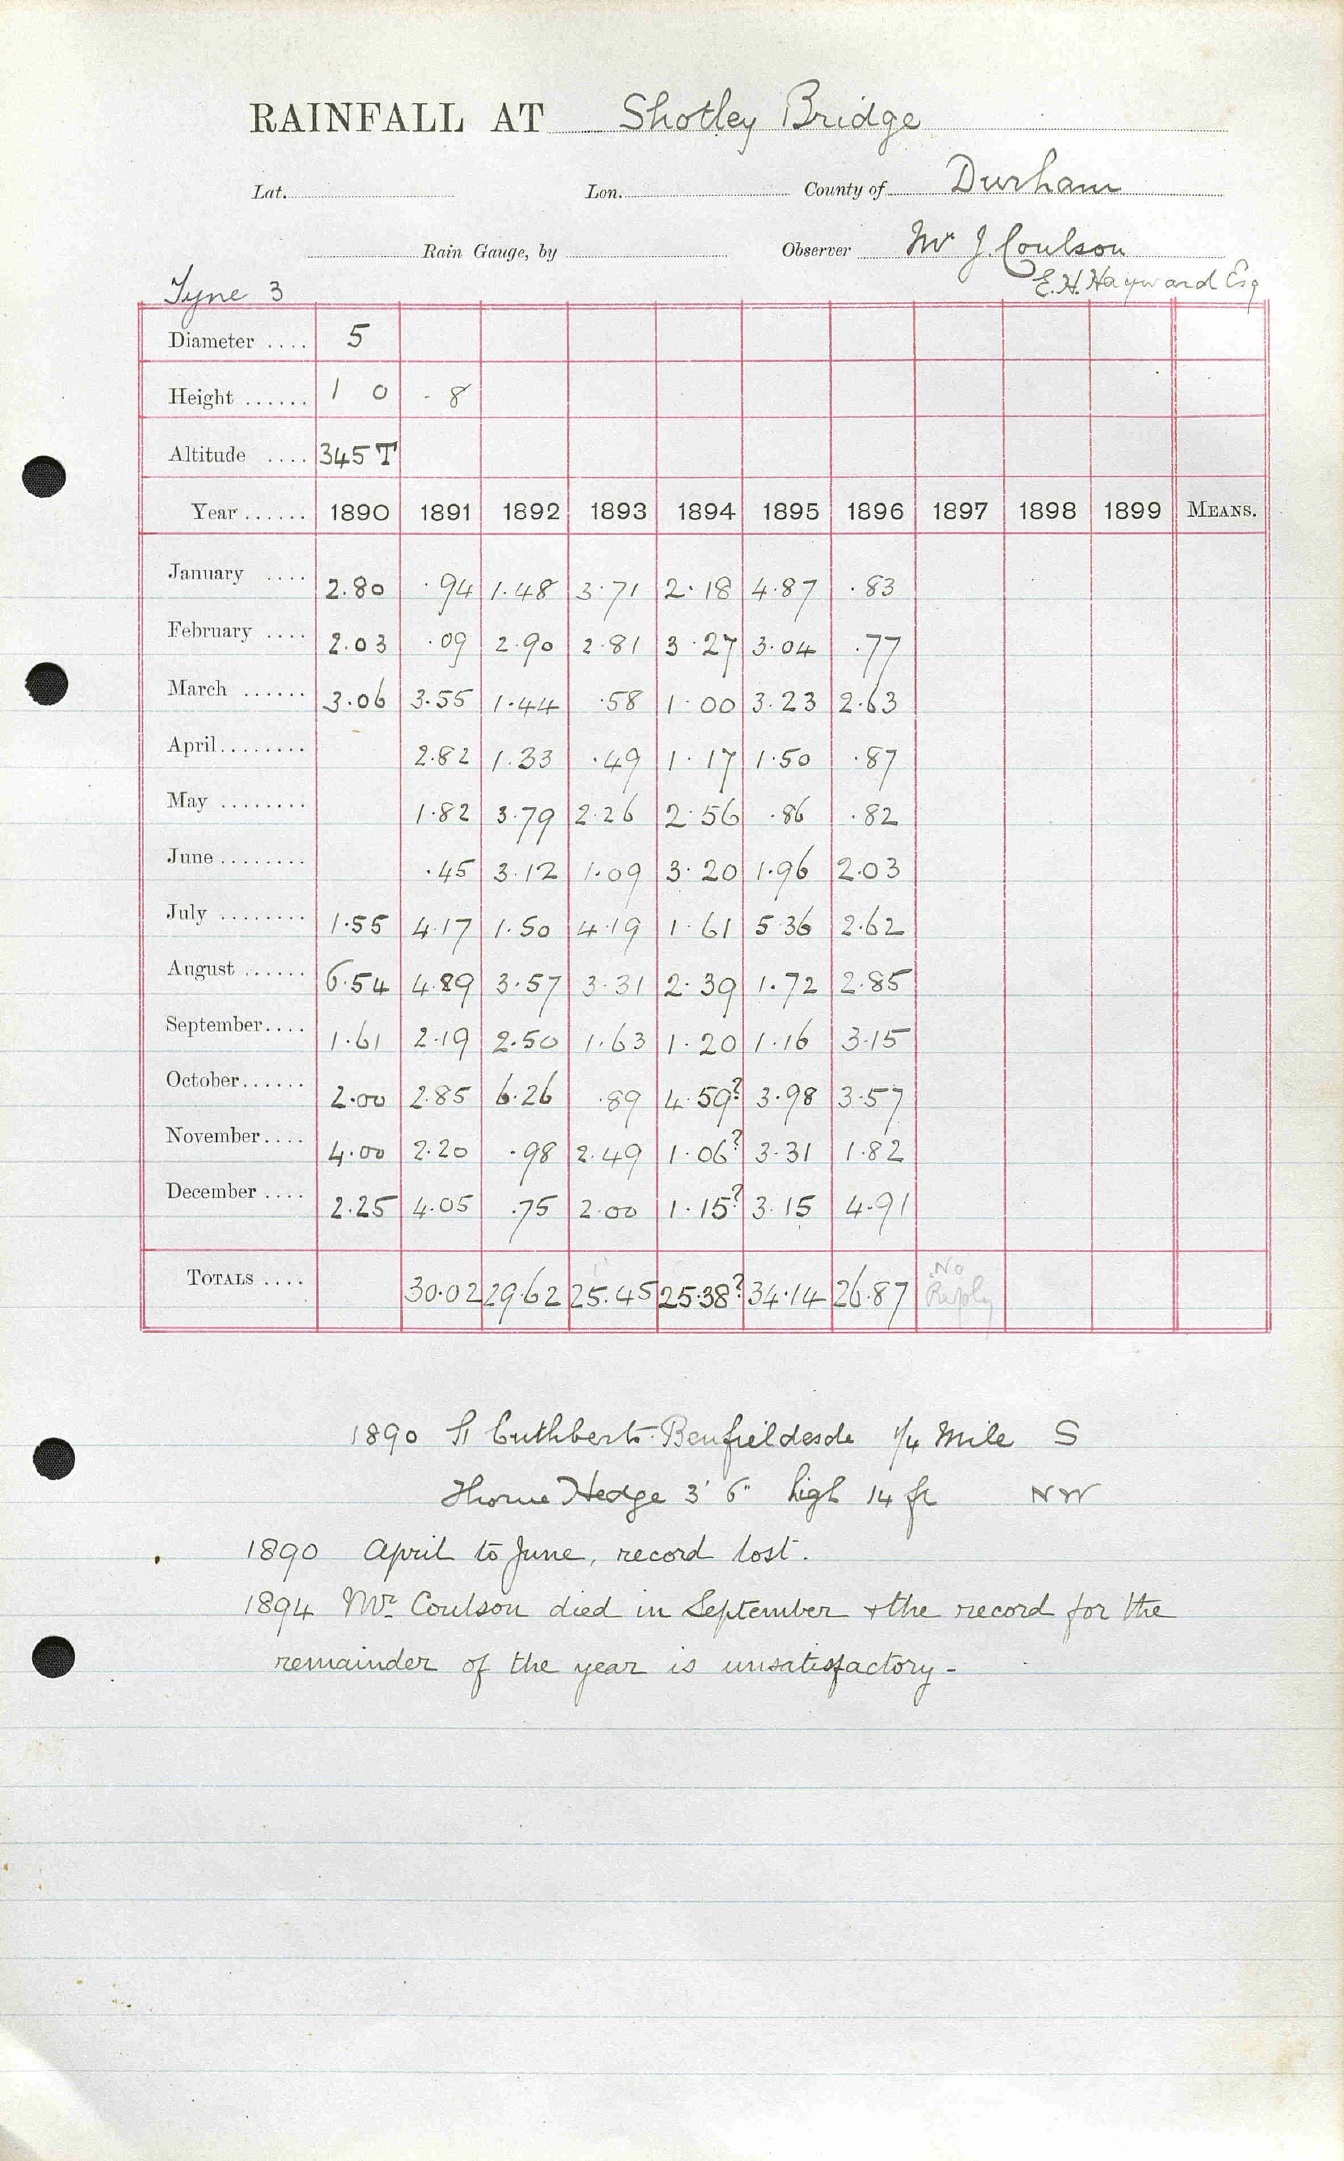 RAINFALL AT Shotley Bridge
Lat. Lon. County of Durham
Rain Gauge, by Observer Mr J. Coulson
Tyne 3 E. H. Hayward Esq
Diameter .... 5
Height ...... 1 0 - 8
Altitude .... 345 T
Year ...... 1890 1891 1892 1893 1894 1895 1896 1897 1898 1899 MEANS.
January .... 2.80 .94 1.48 3.71 2.18 4.87 .83
February .... 2.03 .09 2.90 2.81 3.27 3.04 .77
March ...... 3.06 3.55 1.44 .58 1.00 3.23 2.63
April........ 2.82 1.33 .49 1.17 1.50 .87
May ........ 1.82 3.79 2.26 2.56 .86 .82
June ........ .45 3.12 1.09 3.20 1.96 2.03
July ........ 1.55 4.17 1.50 4.19 1.61 5.36 2.62
August ...... 6.54 4.89 3.57 3.31 2.39 1.72 2.85
September.... 1.61 2.19 2.50 1.63 1.20 1.16 3.15
October...... 2.00 2.85 6.26 .89 4.59? 3.98 3.57
November.... 4.00 2.20 .98 2.49 1.06? 3.31 1.82
December .... 2.25 4.05 .75 2.00 1.15? 3.15 4.91
TOTALS .... 30.02 29.62 25.45 25.38? 34.14 26.87 No Reply
1890 St Cuthberts Benfieldside 1/4 Mile S
Thorne Hedge 3' 6" high 14 ft NW
1890 April to June, record lost.
1894 Mr. Coulson died in September & the record for the
remainder of the year is unsatisfactory -